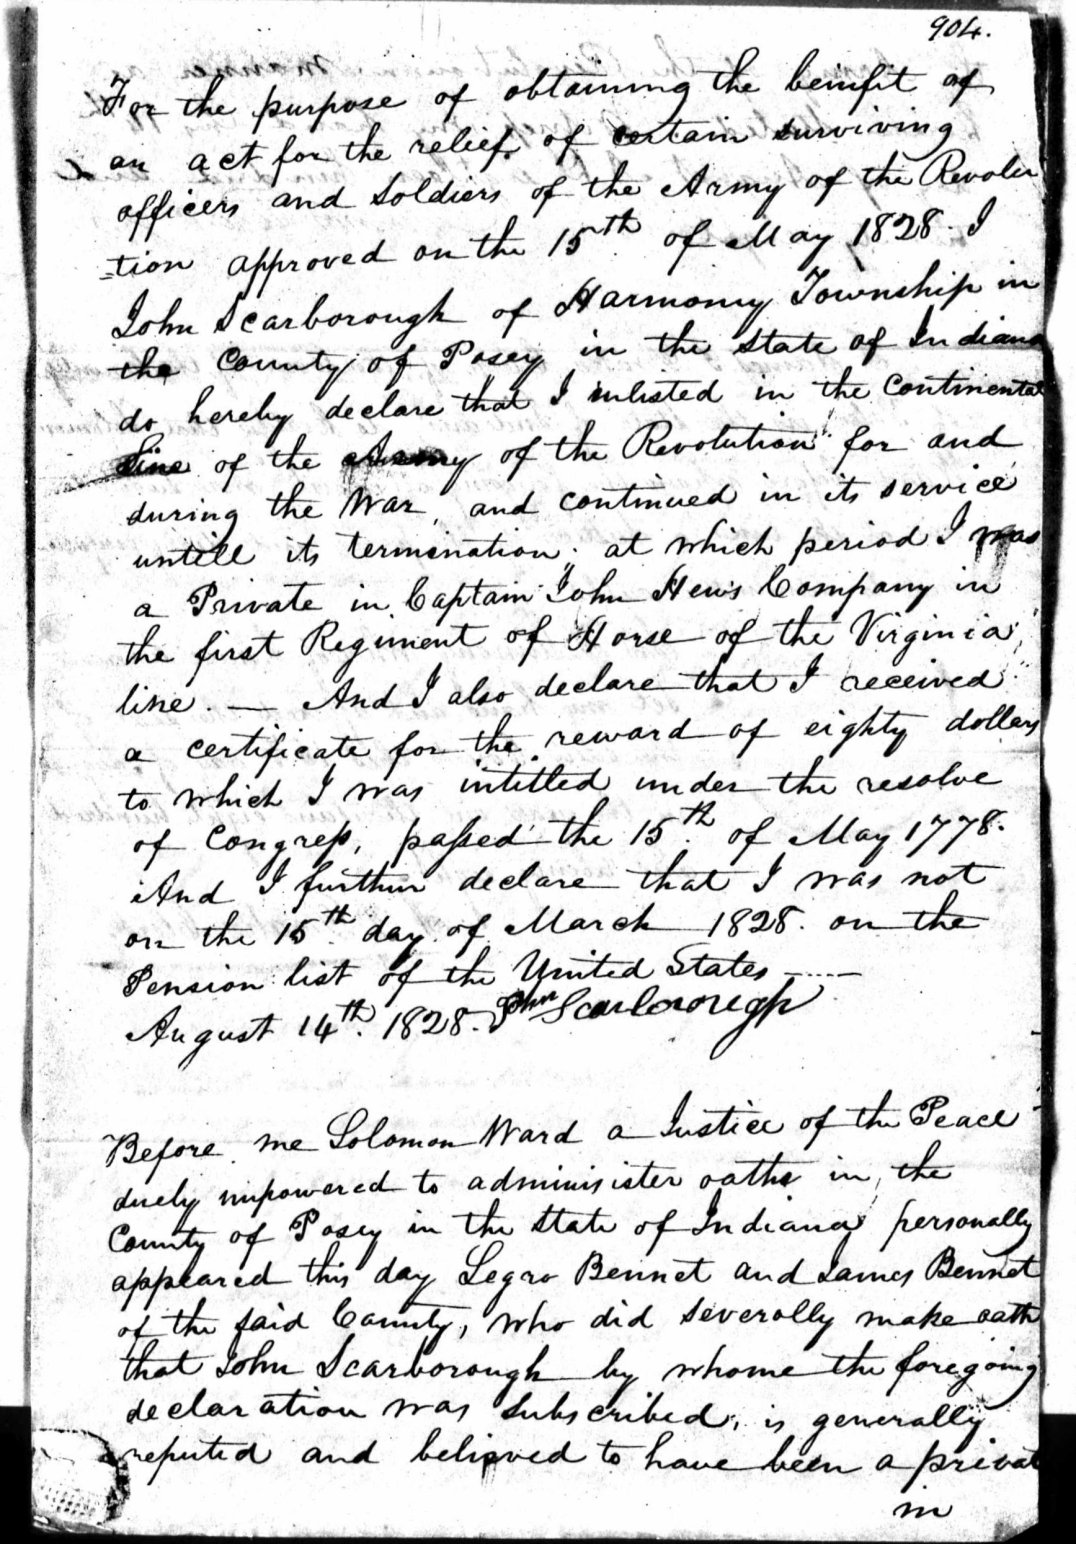 904.
For the purpose of obtaining the benifit of
an act for the relief of certain surviving
officers and Soldiers of the Army of the Revolu
=tion approved on the 15th of May 1828. I
John Scarborough of Harmony Township in
the County of Posey in the State of Indiana
do hereby declare that I inlisted in the Continental
Line of the Army of the Revolution for and
during the War, and continued in its service
untill its termination. at which period I was
a Private in Captain John Hews Company in
the first Regiment of Horse of the Virginia
line. — And I also declare that I received
a certificate for the reward of eighty dollars
to which I was intitled under the resolve
of Congress, passed the 15th of May 1778.
And I further declare that I was not
on the 15th day of March 1828. on the
Pension list of the United States ——
August 14th. 1828. John Scarborough
Before me Solomon Ward a Justice of the Peace
duely impowered to adminisister oaths in the
County of Posey in the State of Indiana personally
appeared this day Legro Bennet and James Bennet
of the said County, who did severolly make oath
that John Scarborough by whome the foregoing
declaration was subscribed, is generally
reputed and believed to have been a privat
in